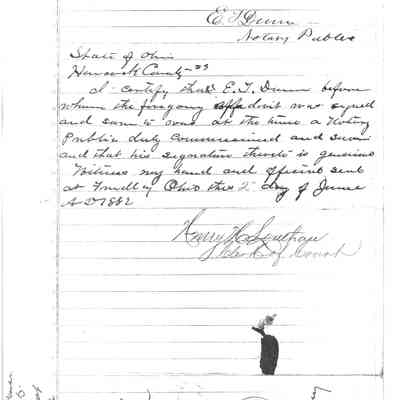 E. T. Dunn
Notary Public
State of Ohio
Hancock County ss
I certify that E. T. Dunn before
whom the foregoing affidavit was signed
and sworn to was at the time a Notary
Public duly commissioned and sworn
and that his signature thereto is genuine
Witness my hand and official seal
at Findlay Ohio this 2 day of June
A D 1882
Clerk of Court